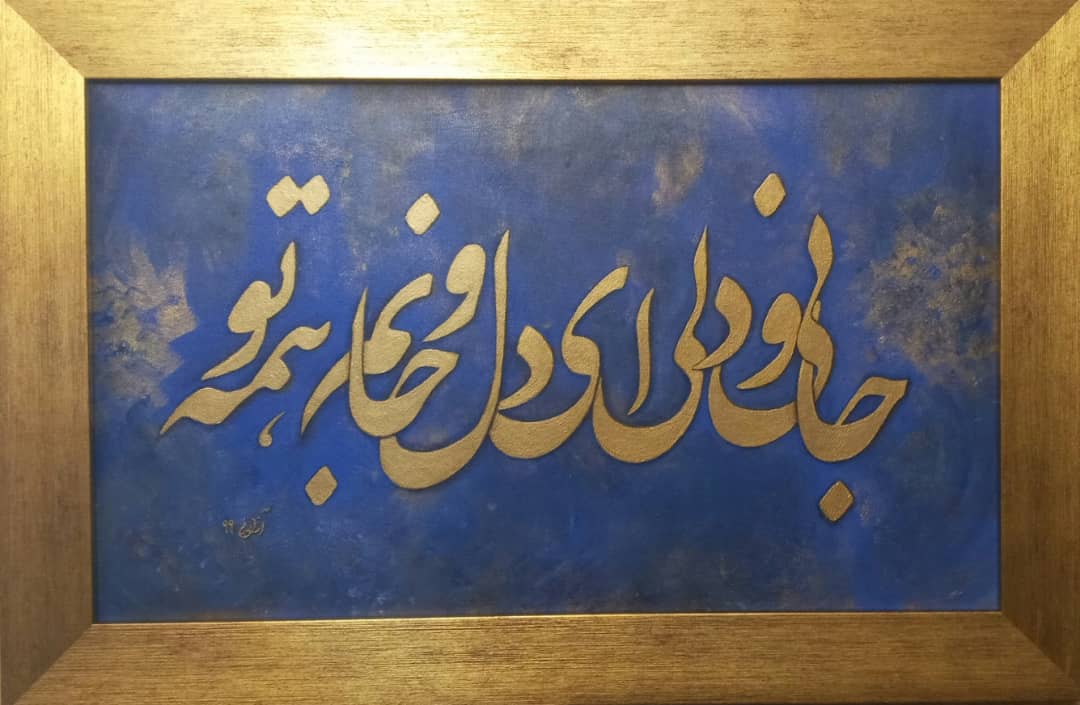 جانی و دلی ای دل و جانم همه تو
۹۹